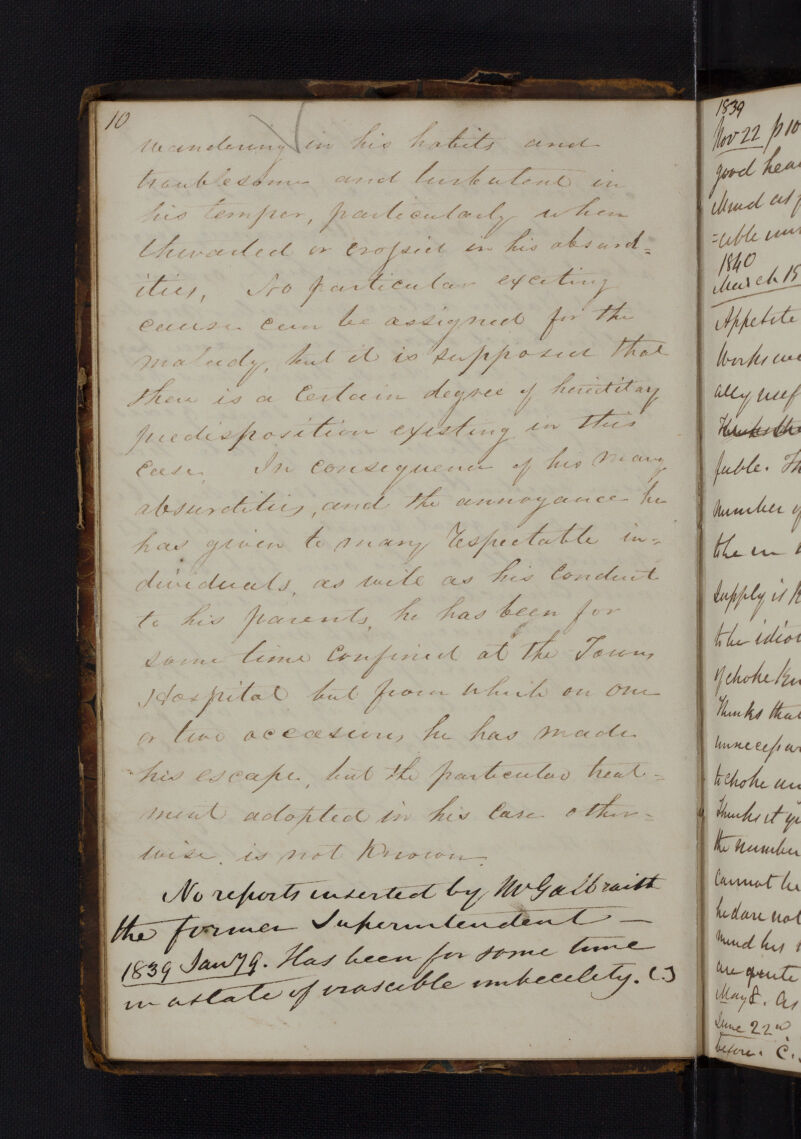 10
wandering in his habits and
troublesome and turbulent in
his temper, particularly when
thwarted or crossed in his absurd=
ities, No particular exciting
cause can be assigned for the
malady, but it is supposed that
there is a Certain degree of hereditary
predisposition existing in this
Case. In consequence of his many
absurdities, and the annoyance he
has given to many respectable in=
dividuals, as well as his Conduct
to his parents, he has been for
some time Confined at the Towns
Hospital but from which on one
or two occasions he has made
his escape, but the particular treat=
ment adopted in his Case other=
wise, is not Known.
No reports inserted by Mr Galbraith
the former Superintendent —
1839 Jany 9. Has been for some time
in a state of irascible imbecility.
1839
Nov 22
good
Mind as
1840
March 15
Appetite
Works
ally
number
the
supply is
the
Thinks that
to choke
Thinks it
the number
cannot
he dare not
mind his
are quite
May 8. As
June 22nd
before. C.